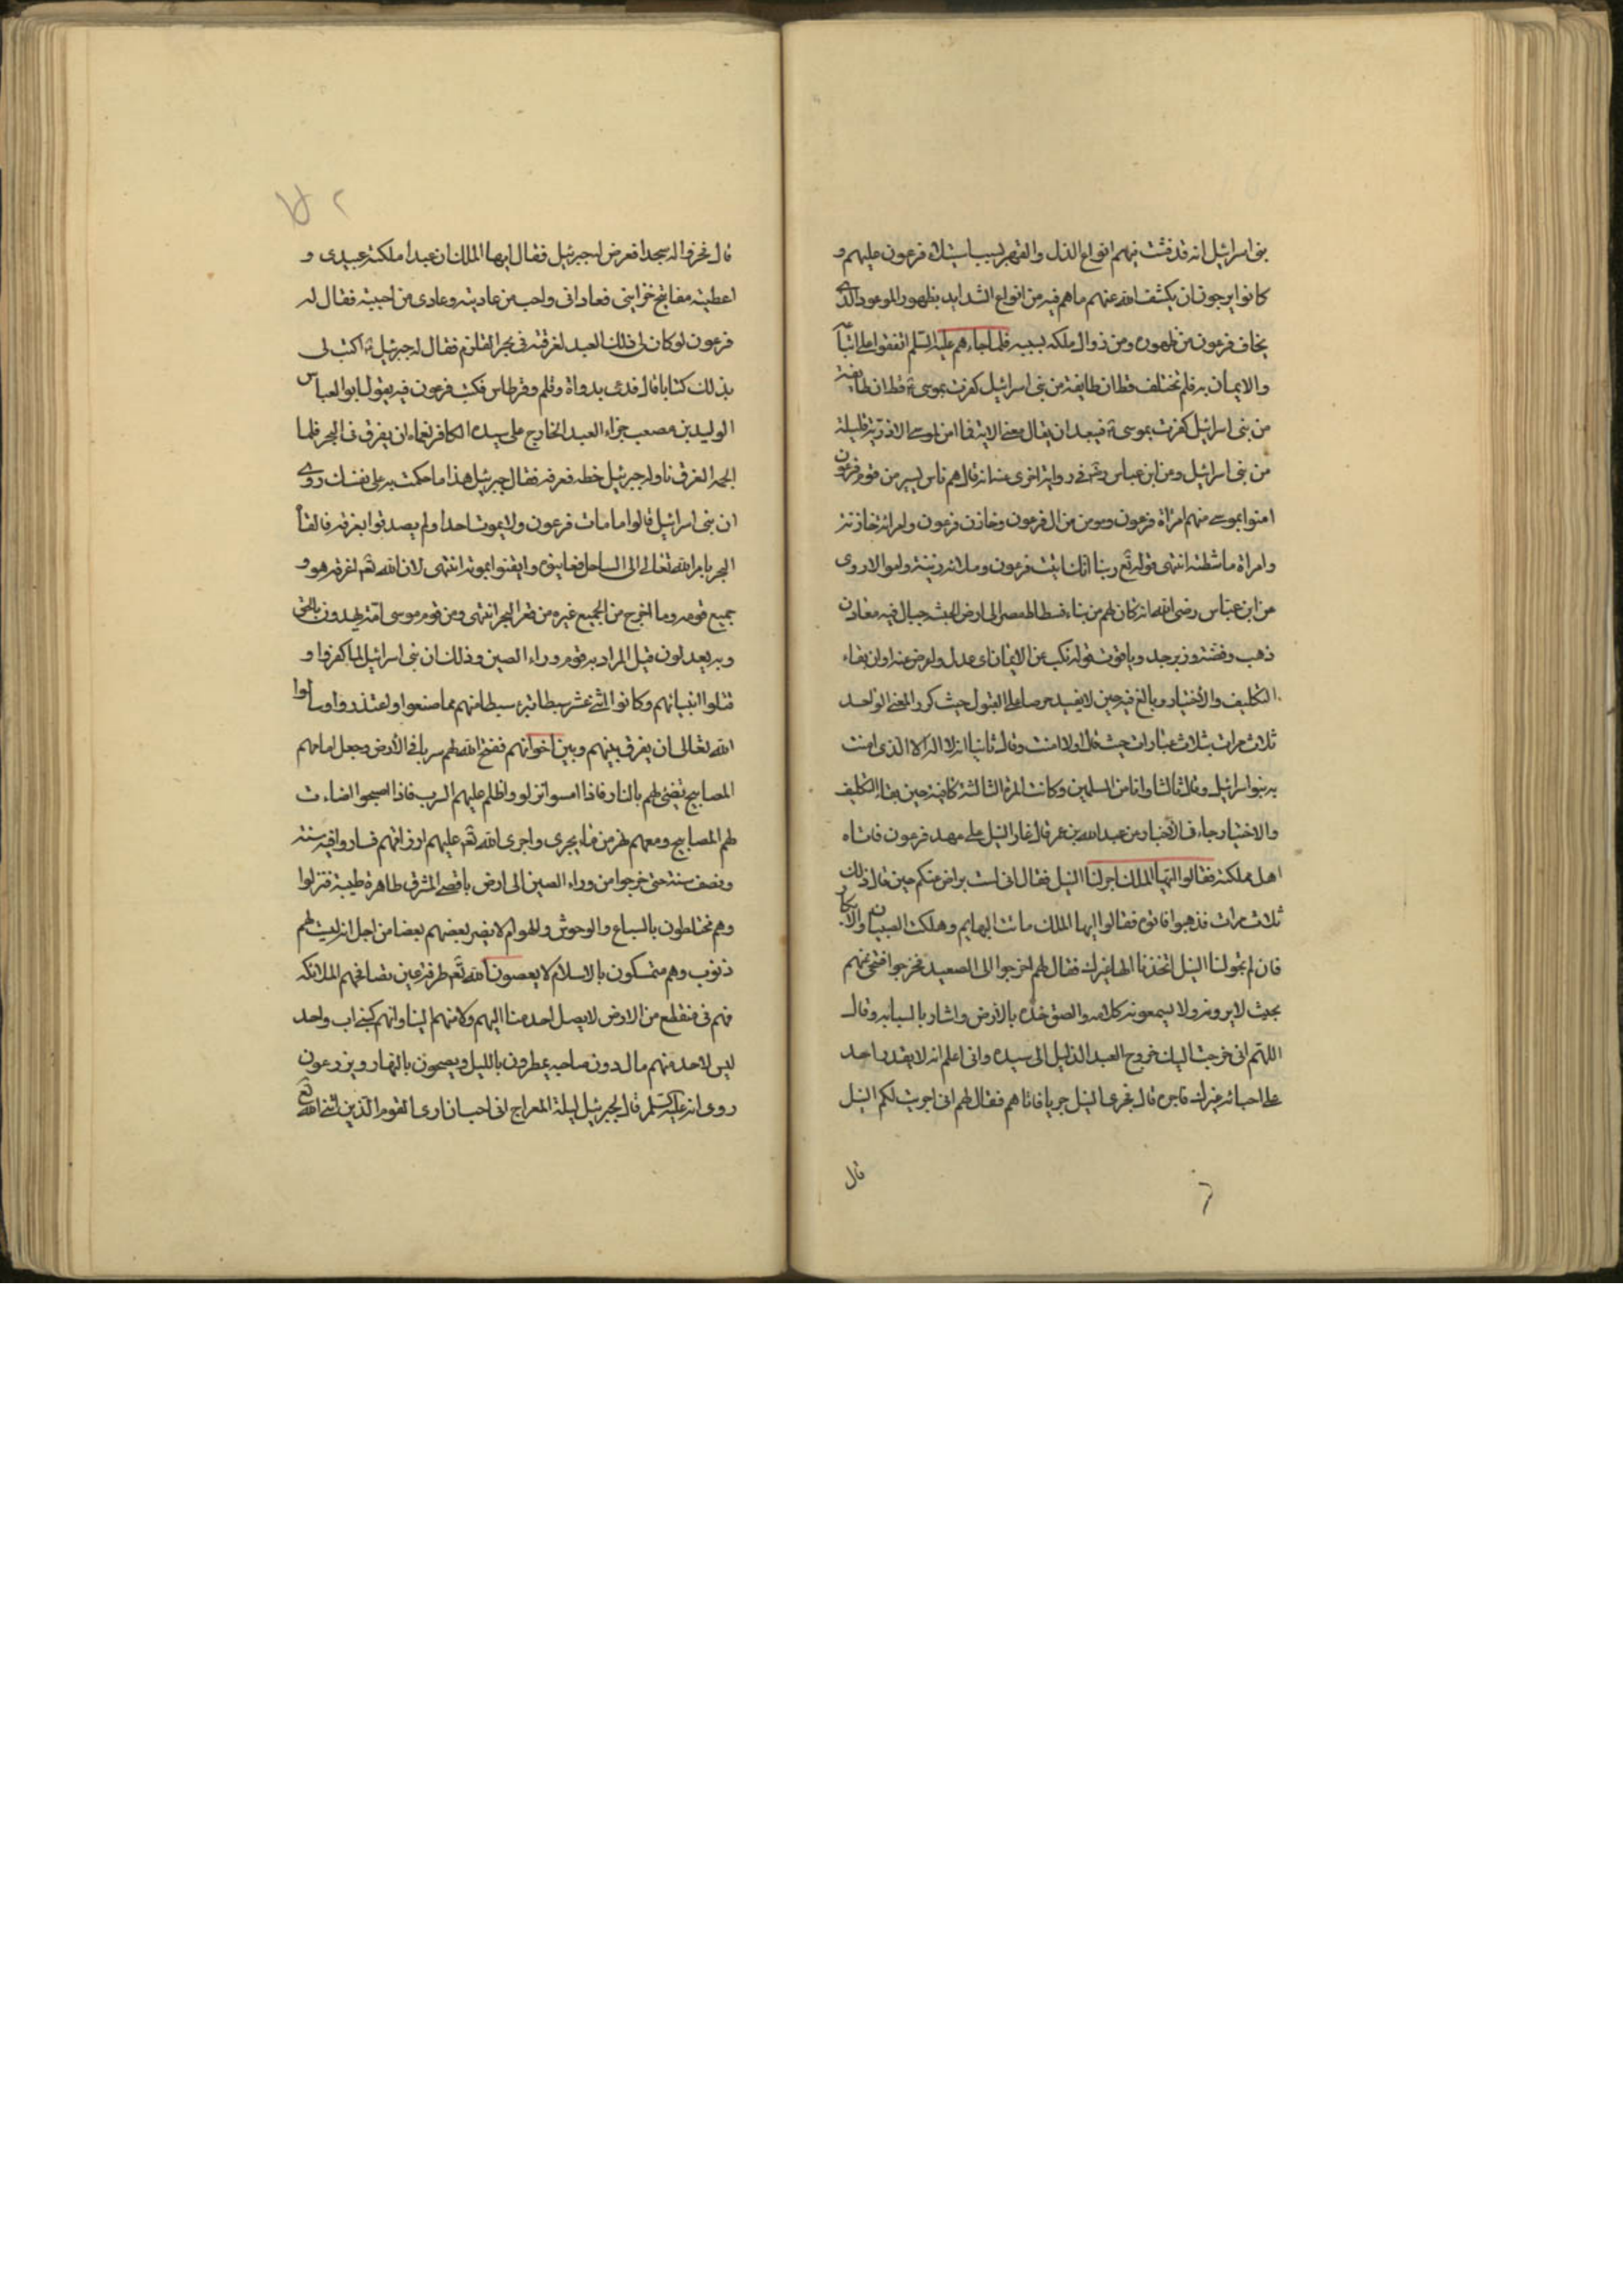 بنى اسرائيل انه قد فشت فيهم انواع الذل والقهر بسبب استيلاء فرعون عليهم و
كانوا يرجون ان يكشف الله عنهم ما هم فيه من انواع الشدايد بظهور الموعود الذى
يخاف فرعون من ظهوره ومن زوال ملكه بسببه فلما جاءهم عليه السلم اتفقوا على اتباعه
والايمان به فلم تختلف قط ان طايفة من بنى اسرائيل كفرت بموسى قط ان طايفة
من بنى اسرائيل كفرت بموسى فبعد ان يقال معنى الاية فما امن لموسى الا ذرية قليلة
من بنى اسرائيل ومن ابن عباس رضه فى رواية اخرى عنه انه قال هم ناس يسير من قوم فرعون
امنوا بموسى منهم امراة فرعون ومومن من ال فرعون وخازن فرعون وامراة خازنه
وامراة ماشطته انتهى قوله تع ربنا انك اتيت فرعون وملائه زينة واموالا روى
عن ابن عباس رضى الله انه كان لهم من بناء فسطاط مصر الى ارض الحبشه جبال فيه معادن
ذهب وفضة وزبرجد وياقوت قوله نكب عن الايمان اى عدل واعرض عنه اوان بقاء
التكليف والاختيار وبالغ فيه حين لا يفيد حرصا على القبول حيث كرر المعنى الواحد
ثلاث مرات بثلاث عبارات حيث قال اولا امنت وقال ثانيا انه لا اله الا الذى امنت
به بنو اسرائيل وقال ثالثا وانا من المسلمين وكانت المرة الثالثة كافية حين بقاء التكليف
والاختيار جاء فى الاخبار عن عبد الله بن عمر قال غار النيل على عهد فرعون فاتاه
اهل مملكته فقالوا ايها الملك اجر لنا النيل فقال انى لست براض عنكم حين قال ذلك
ثلاث مرات فذهبوا فاتوه فقالوا ايها الملك ماتت البهايم وهلكت الصبيان والابكار
فان لم تجر لنا النيل اتخذنا الها غيرك فقال لهم اخرجوا الى الصعيد فخرجوا فتنحى عنهم
بحيث لا يرونه ولا يسمعونه كلامه والصق خده بالارض واشار بالسبابة وقال
اللهم انى خرجت اليك خروج العبد الذليل الى سيده وانى اعلم انه لا يقدر احد
على احيائه غيرك فاجره قال فجرى النيل جريا فاتاهم فقال لهم انى اجريت لكم النيل
قال
٨٢
قال فخروا له سجدا فعرض له جبرئيل فقال ايها الملك ان عبدا ملكته عبيدى و
اعطيته مفاتيح خزاينى فعادانى واحب من عاديته وعادى من احببته فقال له
فرعون لو كان لى ذلك العبد لغرقته فى بحر القلزم فقال له جبرئيل ع اكتب لى
بذلك كتابا قال فدعى بدواة وقلم وقرطاس فكتب فرعون فيه يقول ابو العباس
الوليد بن مصعب جزاء العبد الخارج على سيده الكافر نعماءه ان يغرق فى البحر فلما
الجمه الغرق ناوله جبرئيل خطه فعرفه فقال جبرئيل هذا ما حكمت به على نفسك روى
ان بنى اسرائيل قالوا ما مات فرعون ولا يموت احدا ولم يصدقوا بغرقه فالقاه
البحر بامر الله تعالى الى الساحل فعاينوه وايقنوا بموته انتهى لان الله تع لغرقه هو و
جميع قومه وما اخرج من الجميع غيره من قعر البحر انتهى ومن قوم موسى امة يهدون بالحق
وبه يعدلون قيل المراد به قوم وراء الصين وذلك ان بنى اسرائيل لما كفروا و
قتلوا انبيائهم وكانوا اثنى عشر سبطا تبرء سبط منهم مما صنعوا واعتذروا وسالوا
الله تعالى ان يفرق بينهم وبين اخوانهم ففتح الله لهم سربا فى الارض وجعل امامهم
المصابيح تضئ لهم بالنار فاذا امسوا نزلوا واظلم عليهم السرب فاذا اصبحوا اضاءت
لهم المصابيح ومعهم نهر من ماء يجرى واجرى الله تع عليهم ارزاقهم فساروا فيه سنة
ونصف سنة حتى خرجوا من وراء الصين الى ارض باقصى المشرق طاهرة طيبة فنزلوا
وهم مختلطون بالسباع والوحوش والهوام لا يضر بعضهم بعضا من اجل انه ليست لهم
ذنوب وهم متمسكون بالاسلام لا يعصون الله تع طرفة عين تصافحهم الملائكه
فهم فى منقطع من الارض لا يصل احد منا اليهم ولا منهم الينا وانهم كبنى اب واحد
ليس لاحد منهم مال دون صاحبه يمطرون بالليل ويصحون بالنهار ويزرعون
روى انه عليه السلم قال لجبرئيل ليلة المعراج انى احب ان ارى القوم الذين اثنى الله تع